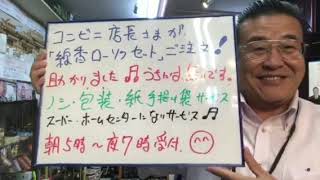 コンビニ店長さまが
「線香ローソクセート」ご注文!
助かりました♫うちんは、です。
ノシ・包装・紙手提げ袋サービス
スーパー・ホームセンターにないサービス♫
朝5時〜夜7時受付